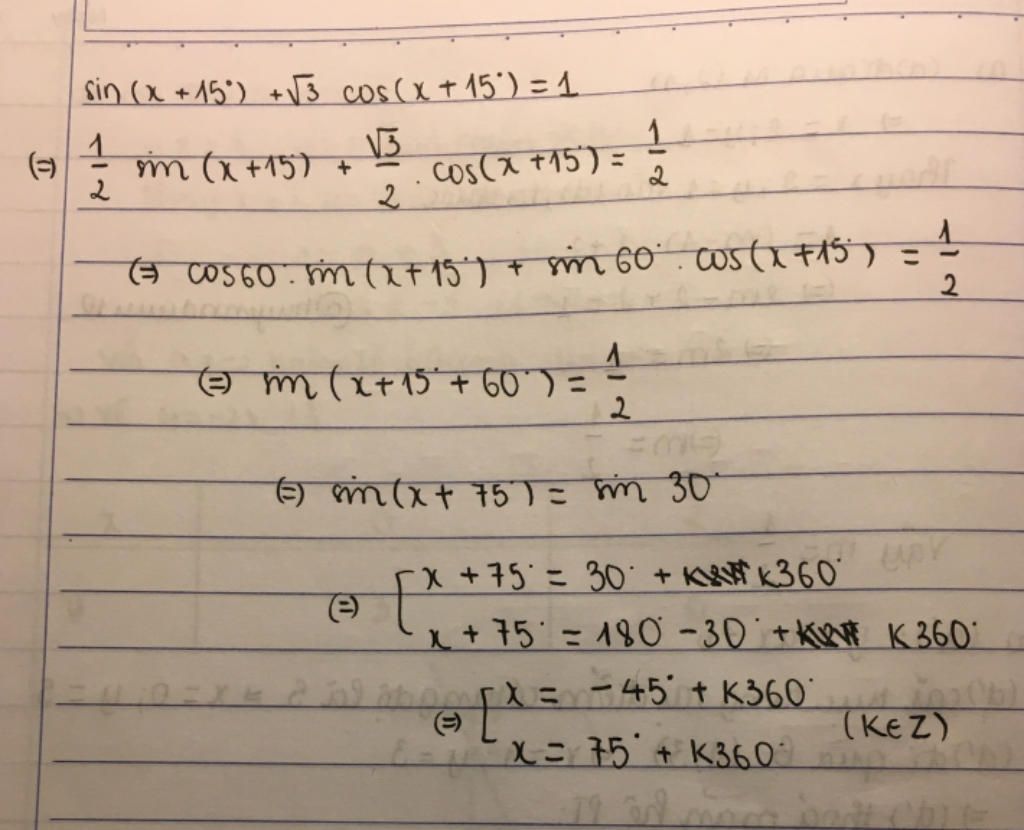 sin(x+15°) + √3 cos(x+15°) = 1
(=) 1/2 sin(x+15°) + √3/2 . cos(x+15°) = 1/2
(=) cos60° . sin(x+15°) + sin60° . cos(x+15°) = 1/2
(=) sin(x+15°+60°) = 1/2
(=) sin(x+75°) = sin 30°
(=) [ x + 75° = 30° + K360°
x + 75° = 180° - 30° + K360°
(=) [ x = -45° + K360°
x = 75° + K360° (K∈Z)